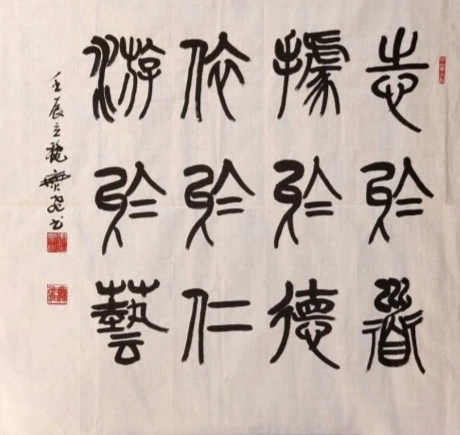 志於道
據於德
依於仁
游於藝
壬辰立秋